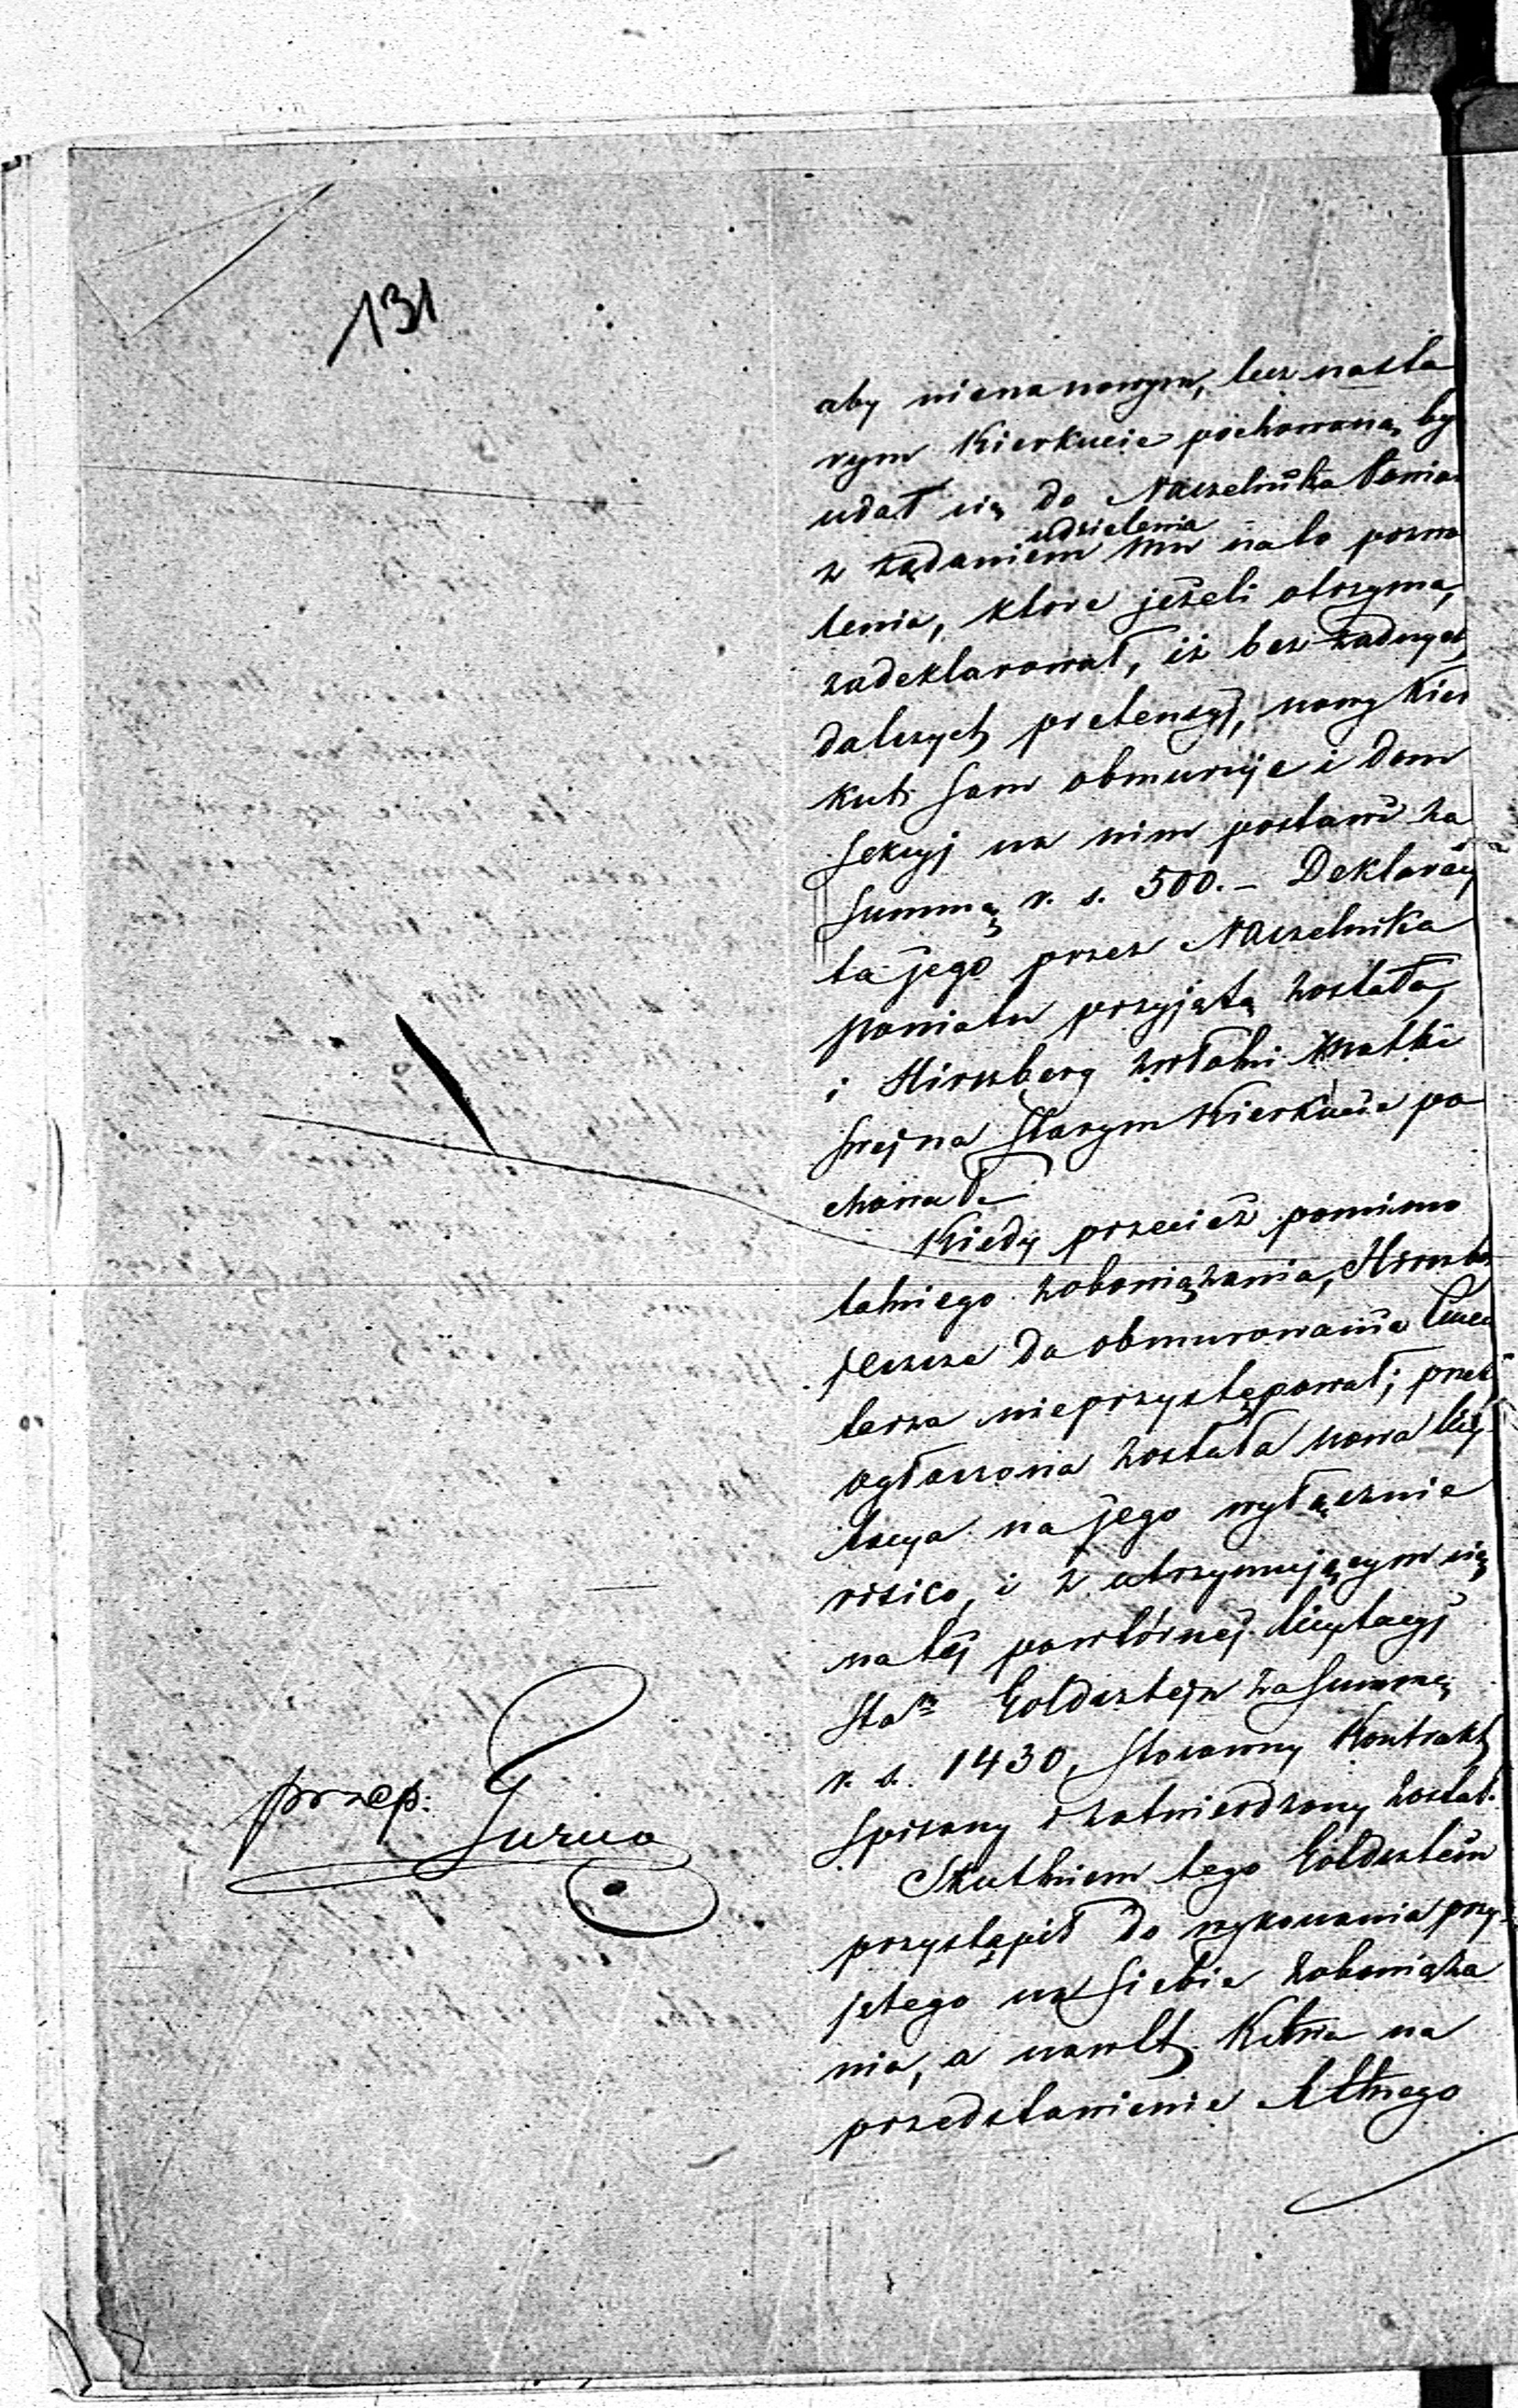 131
aby nienanowym, lecz nasta
rym Kierkucie pochowaną by
udał się do Naczelnika Powia
z żądaniem udzielenia mu nato pozwo
lenia, ktore jeżeli otrzyma,
zadeklarował, iż bez żadnych
dalszych pretensyj, nowy Kier
kut sam obmuruje i dom
sekcyj na nim postawi za
summę r. s. 500. – Deklaracy
ta jego przez Naczelnika
powiatu przyjętą została,
i Hirszberg zwłoki Matki
swej na starym Kierkucie po
chował.
Kiedy przecież pomimo
takiego zobowiązania, Hirszbe
jeszcze do obmurowania Cmen
tarza nieprzystępował; przeto
ogłoszona została nowa licy
tacya na jego wyłącznie
risico, i z utrzymującym się
na téj powtórnej licytacyj
Sta<sup>m</sup> Goldsztejn za summę
r. s. 1430, stosowny Kontrakt
spisany i zatwierdzony został.
Skutkiem tego Goldsztein
przystąpił do wykonania przy
jetego na siebie zobowiąza
nia, a nawet na
przedstawienie
przep: